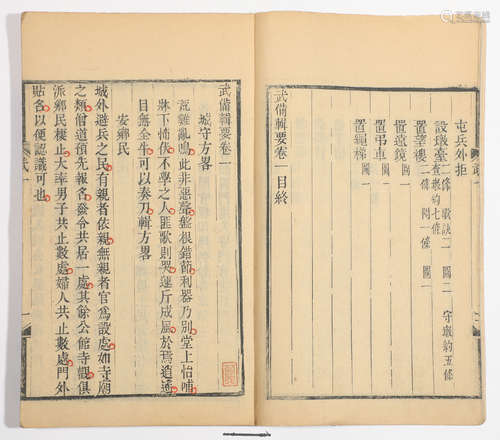 屯兵外拒
設墩臺 墩訣二條 圖二 守墩約五條 查墩約七條
置望樓 二條 圖一
置遠鏡 一條 圖一
置弔車 圖一
置繩梯 圖一
武備輯要卷一目終
武備輯要卷一
城守方畧
荒雞亂鳴此非惡聲盤根錯節利器乃別堂上怡哺
牀下怖伏不學之人匪歌則哭運斤成風於焉逍遙
目無全牛可以奏刀輯方畧
安鄉民
城外避兵之民有親者依親無親者官為設處如寺廟
之類僧道預先報名發令共居一處其餘公館寺觀俱
派鄉民棲止大率男子共止數處婦人共止數處門外
貼名以便認識可也